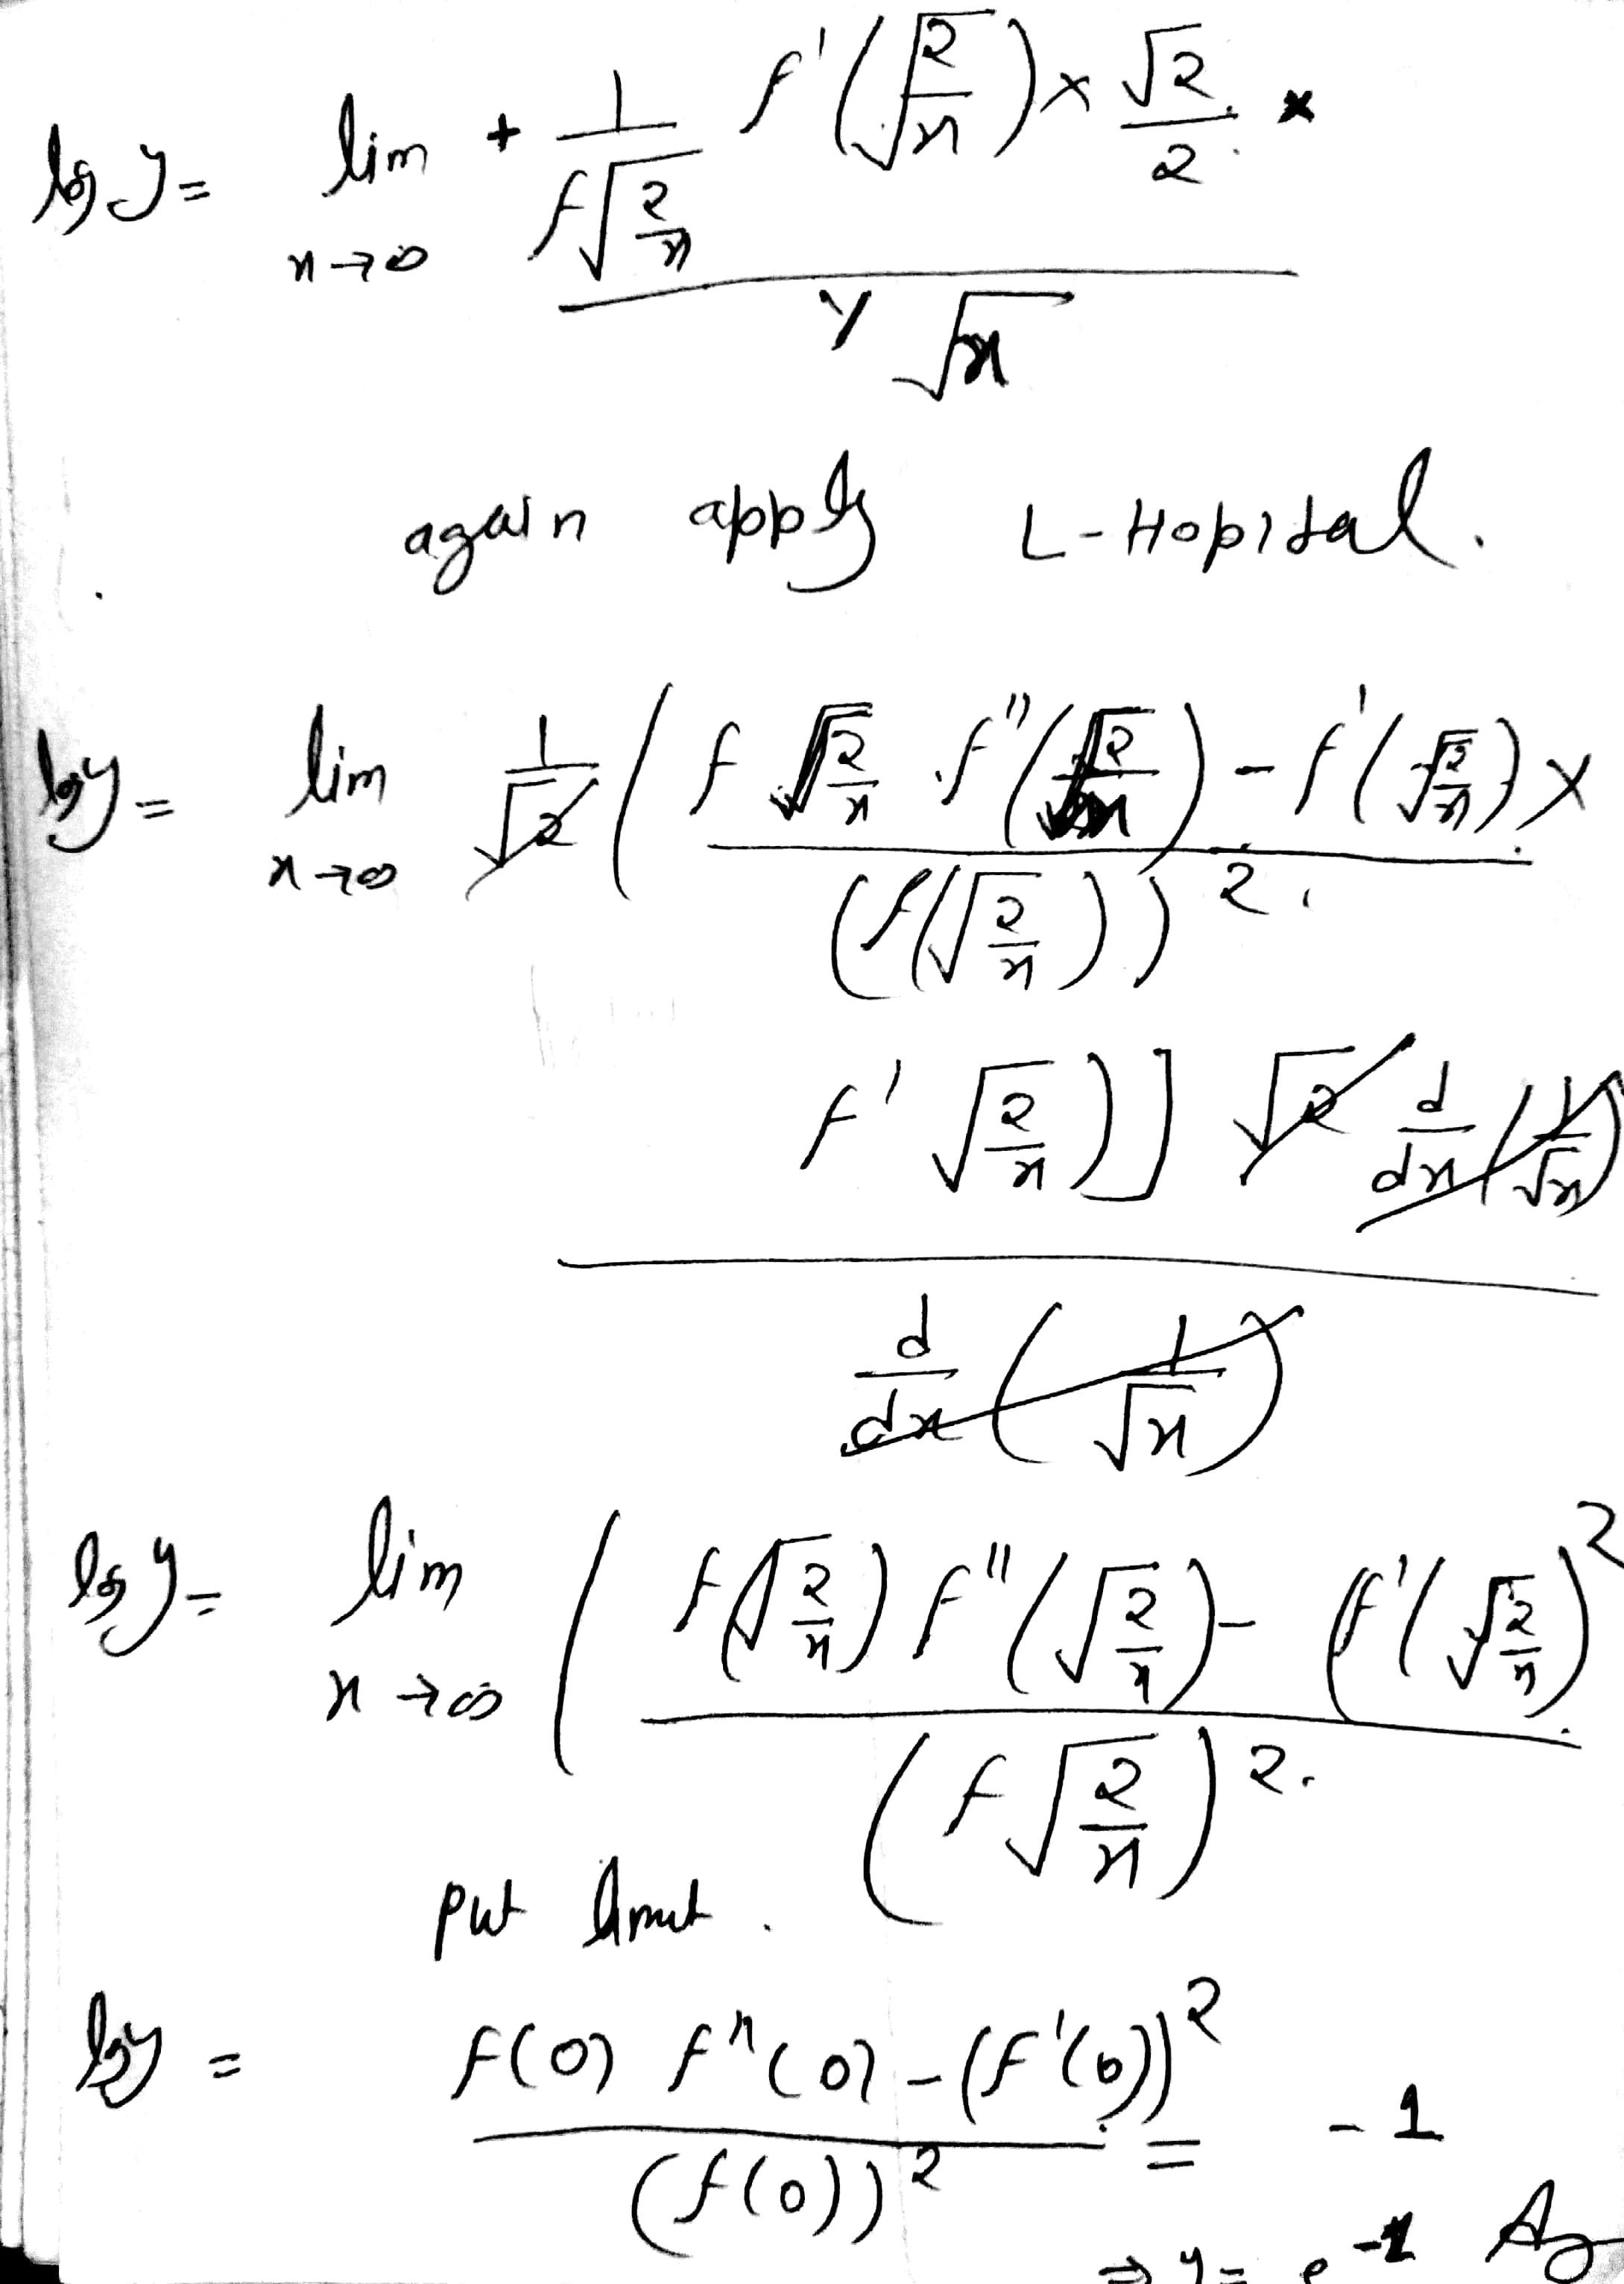 log y = lim x→∞ + 1/f√(2/x) f'(√(2/x)) × √2/2 ×
1/√x
again apply L-Hopital.
log y = lim x→∞ 1/√2 ( f√(2/x) f''(√(2/x)) - f'(√(2/x)) × / (f(√(2/x)))².
f'√(2/x))] √2 d/dx (1/√x)
d/dx (1/√x)
log y = lim x→∞ ( f(√(2/x)) f''(√(2/x)) - (f'(√(2/x))² / (f√(2/x))².
put limit.
log y = f(0) f''(0) - (f'(0))² / (f(0))² = -1
⇒ y = e⁻¹